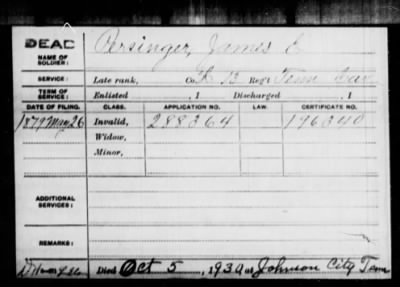 DEAD Persinger, James E
NAME OF
SOLDIER:
SERVICE: Late rank, Co. K 13 Reg't Tenn Cav
TERM OF
SERVICE: Enlisted , 1 Discharged , 1
DATE OF FILING. CLASS. APPLICATION NO. LAW. CERTIFICATE NO.
1879 May 26 Invalid, 288364 196340
Widow,
Minor,
ADDITIONAL
SERVICES:
REMARKS:
Died Oct 5, 1930, at Johnson City Tenn